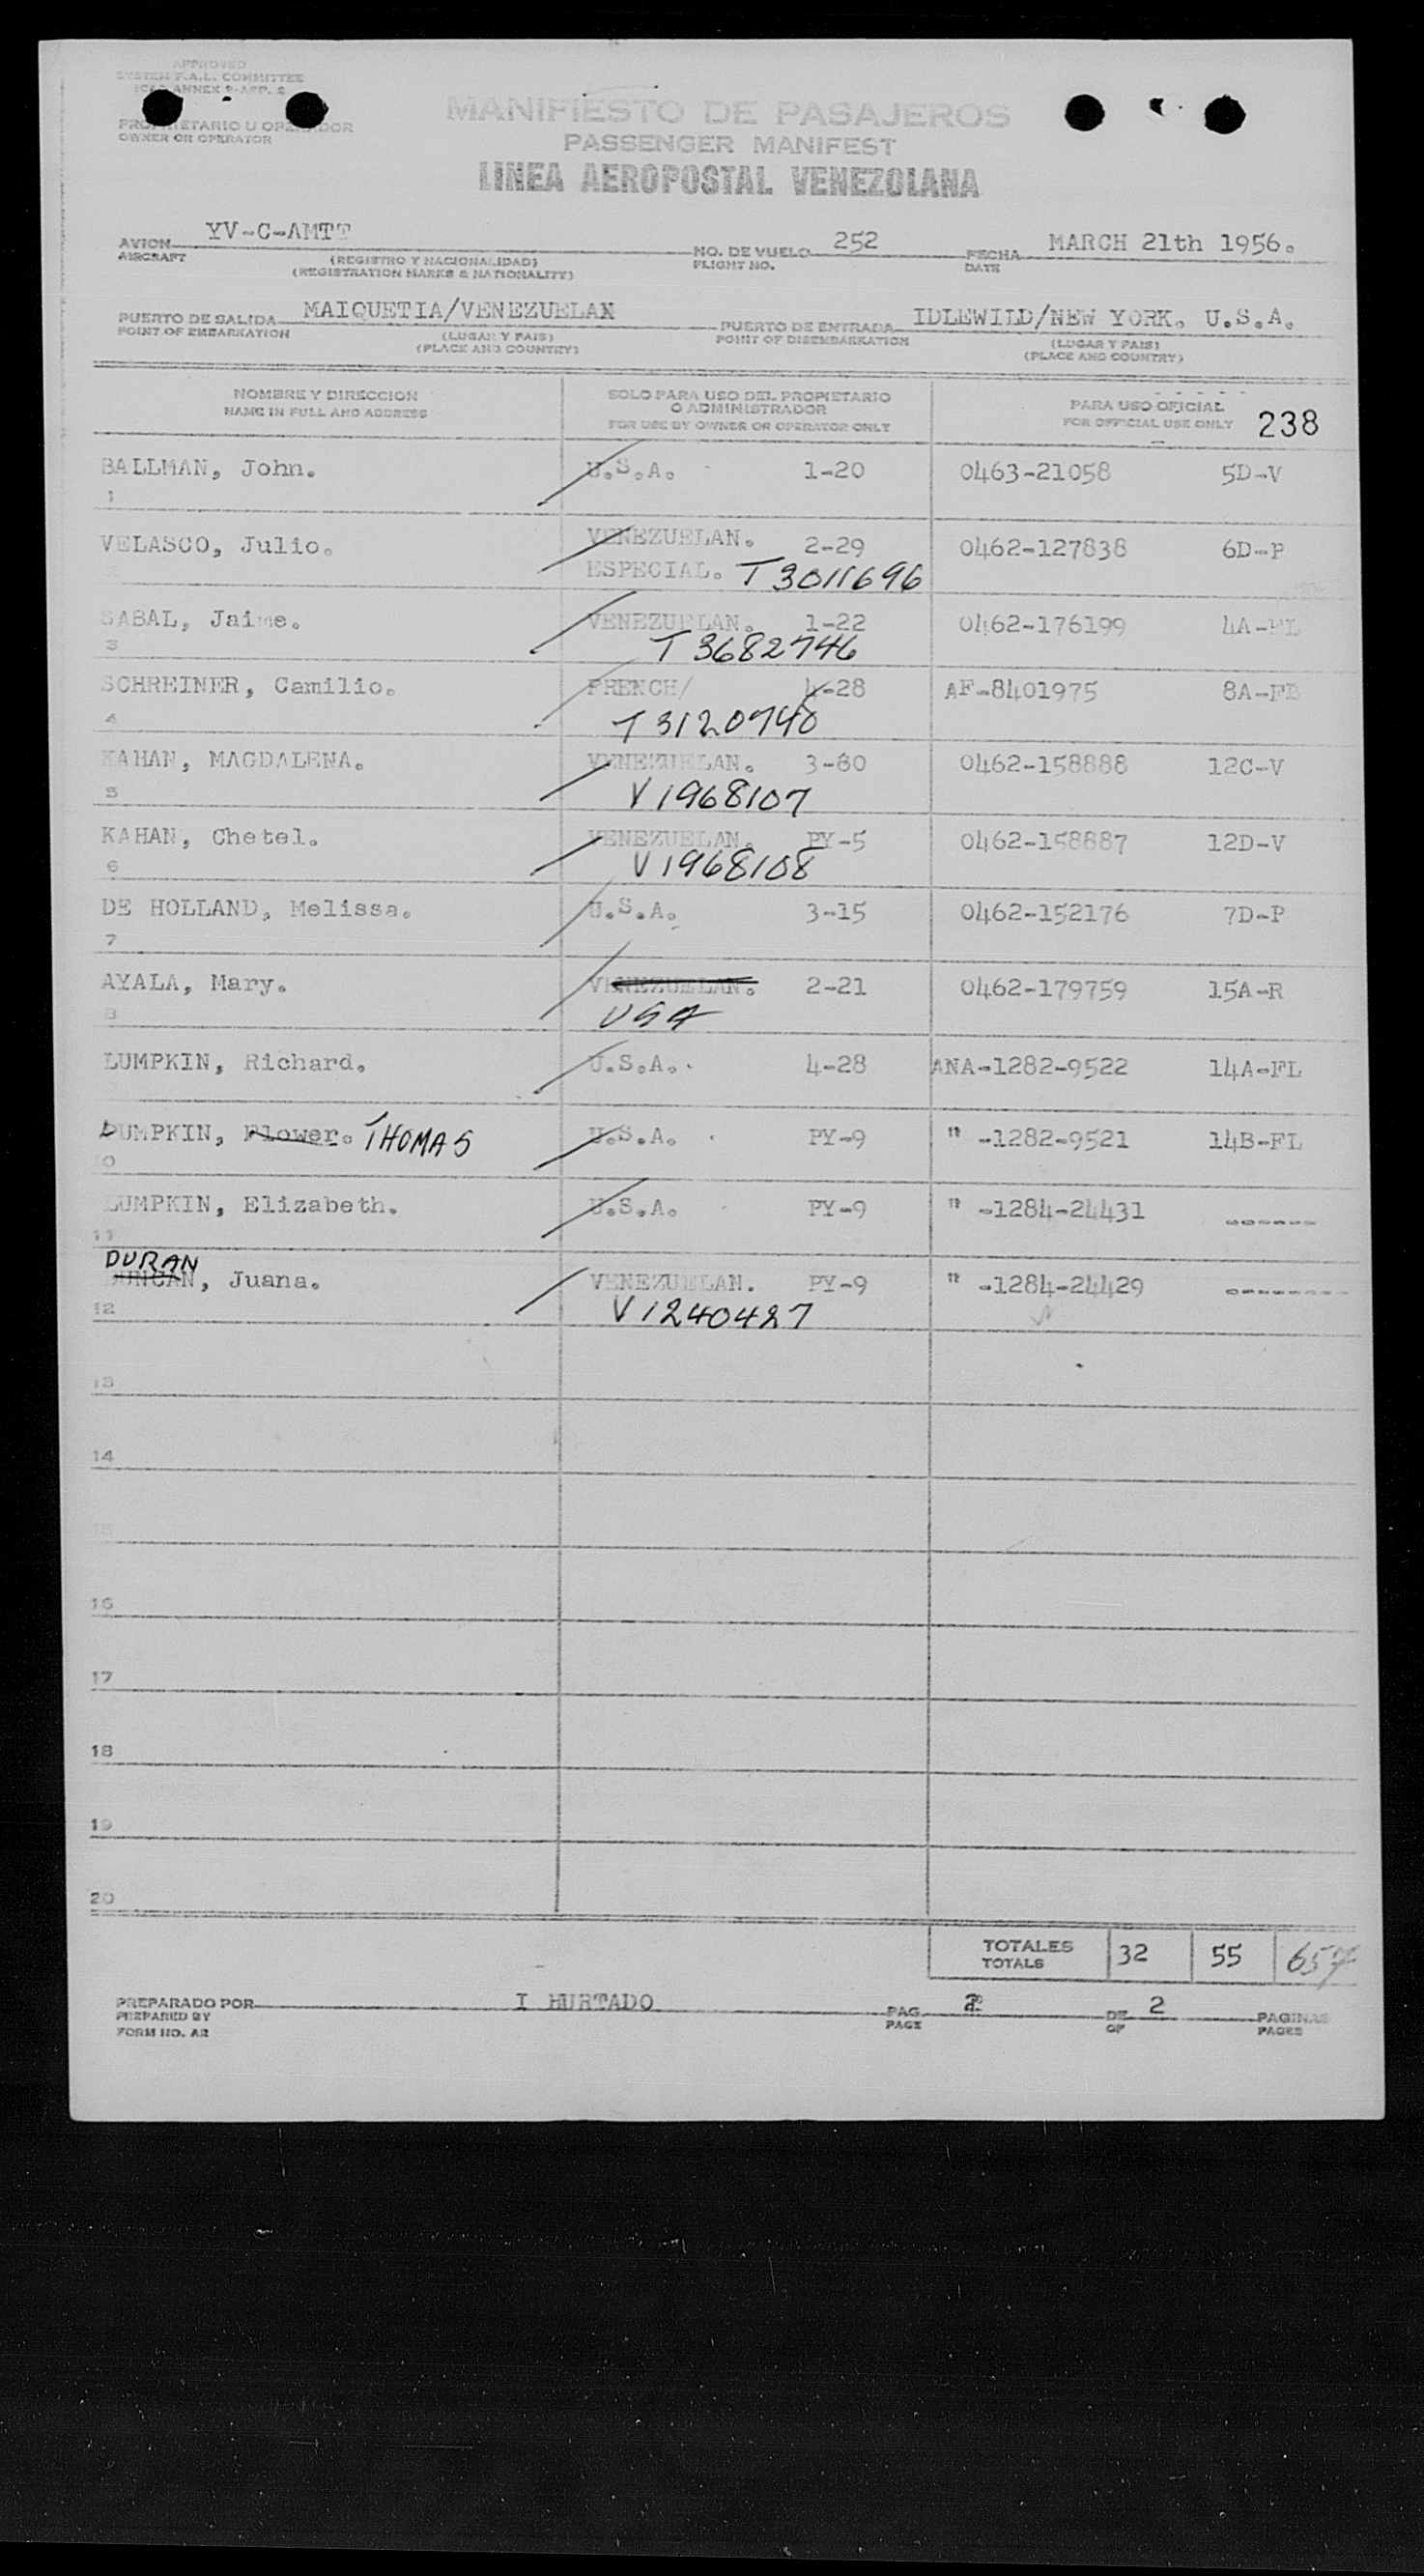 APPROVED
SYSTEM F.A.L. COMMITTEE
ANNEX 9-APP. 2
PROPIETARIO U OPERADOR
OWNER OR OPERATOR
MANIFIESTO DE PASAJEROS
PASSENGER MANIFEST
LINEA AEROPOSTAL VENEZOLANA
AVION YV-C-AMTT NO. DE VUELO 252 FECHA MARCH 21th 1956.
AIRCRAFT (REGISTRO Y NACIONALIDAD) FLIGHT NO. DATE
(REGISTRATION MARKS & NATIONALITY)
PUERTO DE SALIDA MAIQUETIA/VENEZUELAN PUERTO DE ENTRADA IDLEWILD/NEW YORK, U.S.A.
POINT OF EMBARKATION (LUGAR Y PAIS) POINT OF DISEMBARKATION (LUGAR Y PAIS)
(PLACE AND COUNTRY) (PLACE AND COUNTRY)
NOMBRE Y DIRECCION SOLO PARA USO DEL PROPIETARIO PARA USO OFICIAL
NAME IN FULL AND ADDRESS O ADMINISTRADOR FOR OFFICIAL USE ONLY 238
FOR USE BY OWNER OR OPERATOR ONLY
BALLMAN, John. U.S.A. 1-20 0463-21058 5D-V
1
VELASCO, Julio. VENEZUELAN. 2-29 0462-127838 6D-P
ESPECIAL. T3011696
SABAL, Jaime. VENEZUELAN. 1-22 0462-176199 4A-FL
3 T3682746
SCHREINER, Camilio. FRENCH/ 4-28 AF-8401975 8A-FL
4 T3120740
KAHAN, MAGDALENA. VENEZUELAN. 3-60 0462-158888 12C-V
5 V1968107
KAHAN, Chetel. VENEZUELAN. PY-5 0462-158887 12D-V
6 V1968108
DE HOLLAND, Melissa. U.S.A. 3-15 0462-152176 7D-P
7
AYALA, Mary. VENEZUELAN. 2-21 0462-179759 15A-R
8 USA
LUMPKIN, Richard. U.S.A. 4-28 ANA-1282-9522 14A-FL
LUMPKIN, Flower. THOMAS U.S.A. PY-9 " -1282-9521 14B-FL
10
LUMPKIN, Elizabeth. U.S.A. PY-9 " -1284-24431 -------
11
DURAN
DUNCAN, Juana. VENEZUELAN. PY-9 " -1284-24429 ---------
12 V1240427
13
14
15
16
17
18
19
20
TOTALES 32 55 657
TOTALS
PREPARADO POR I HURTADO PAG 2 DE 2 PAGINAS
PREPARED BY PAGE OF PAGES
FORM NO. A2